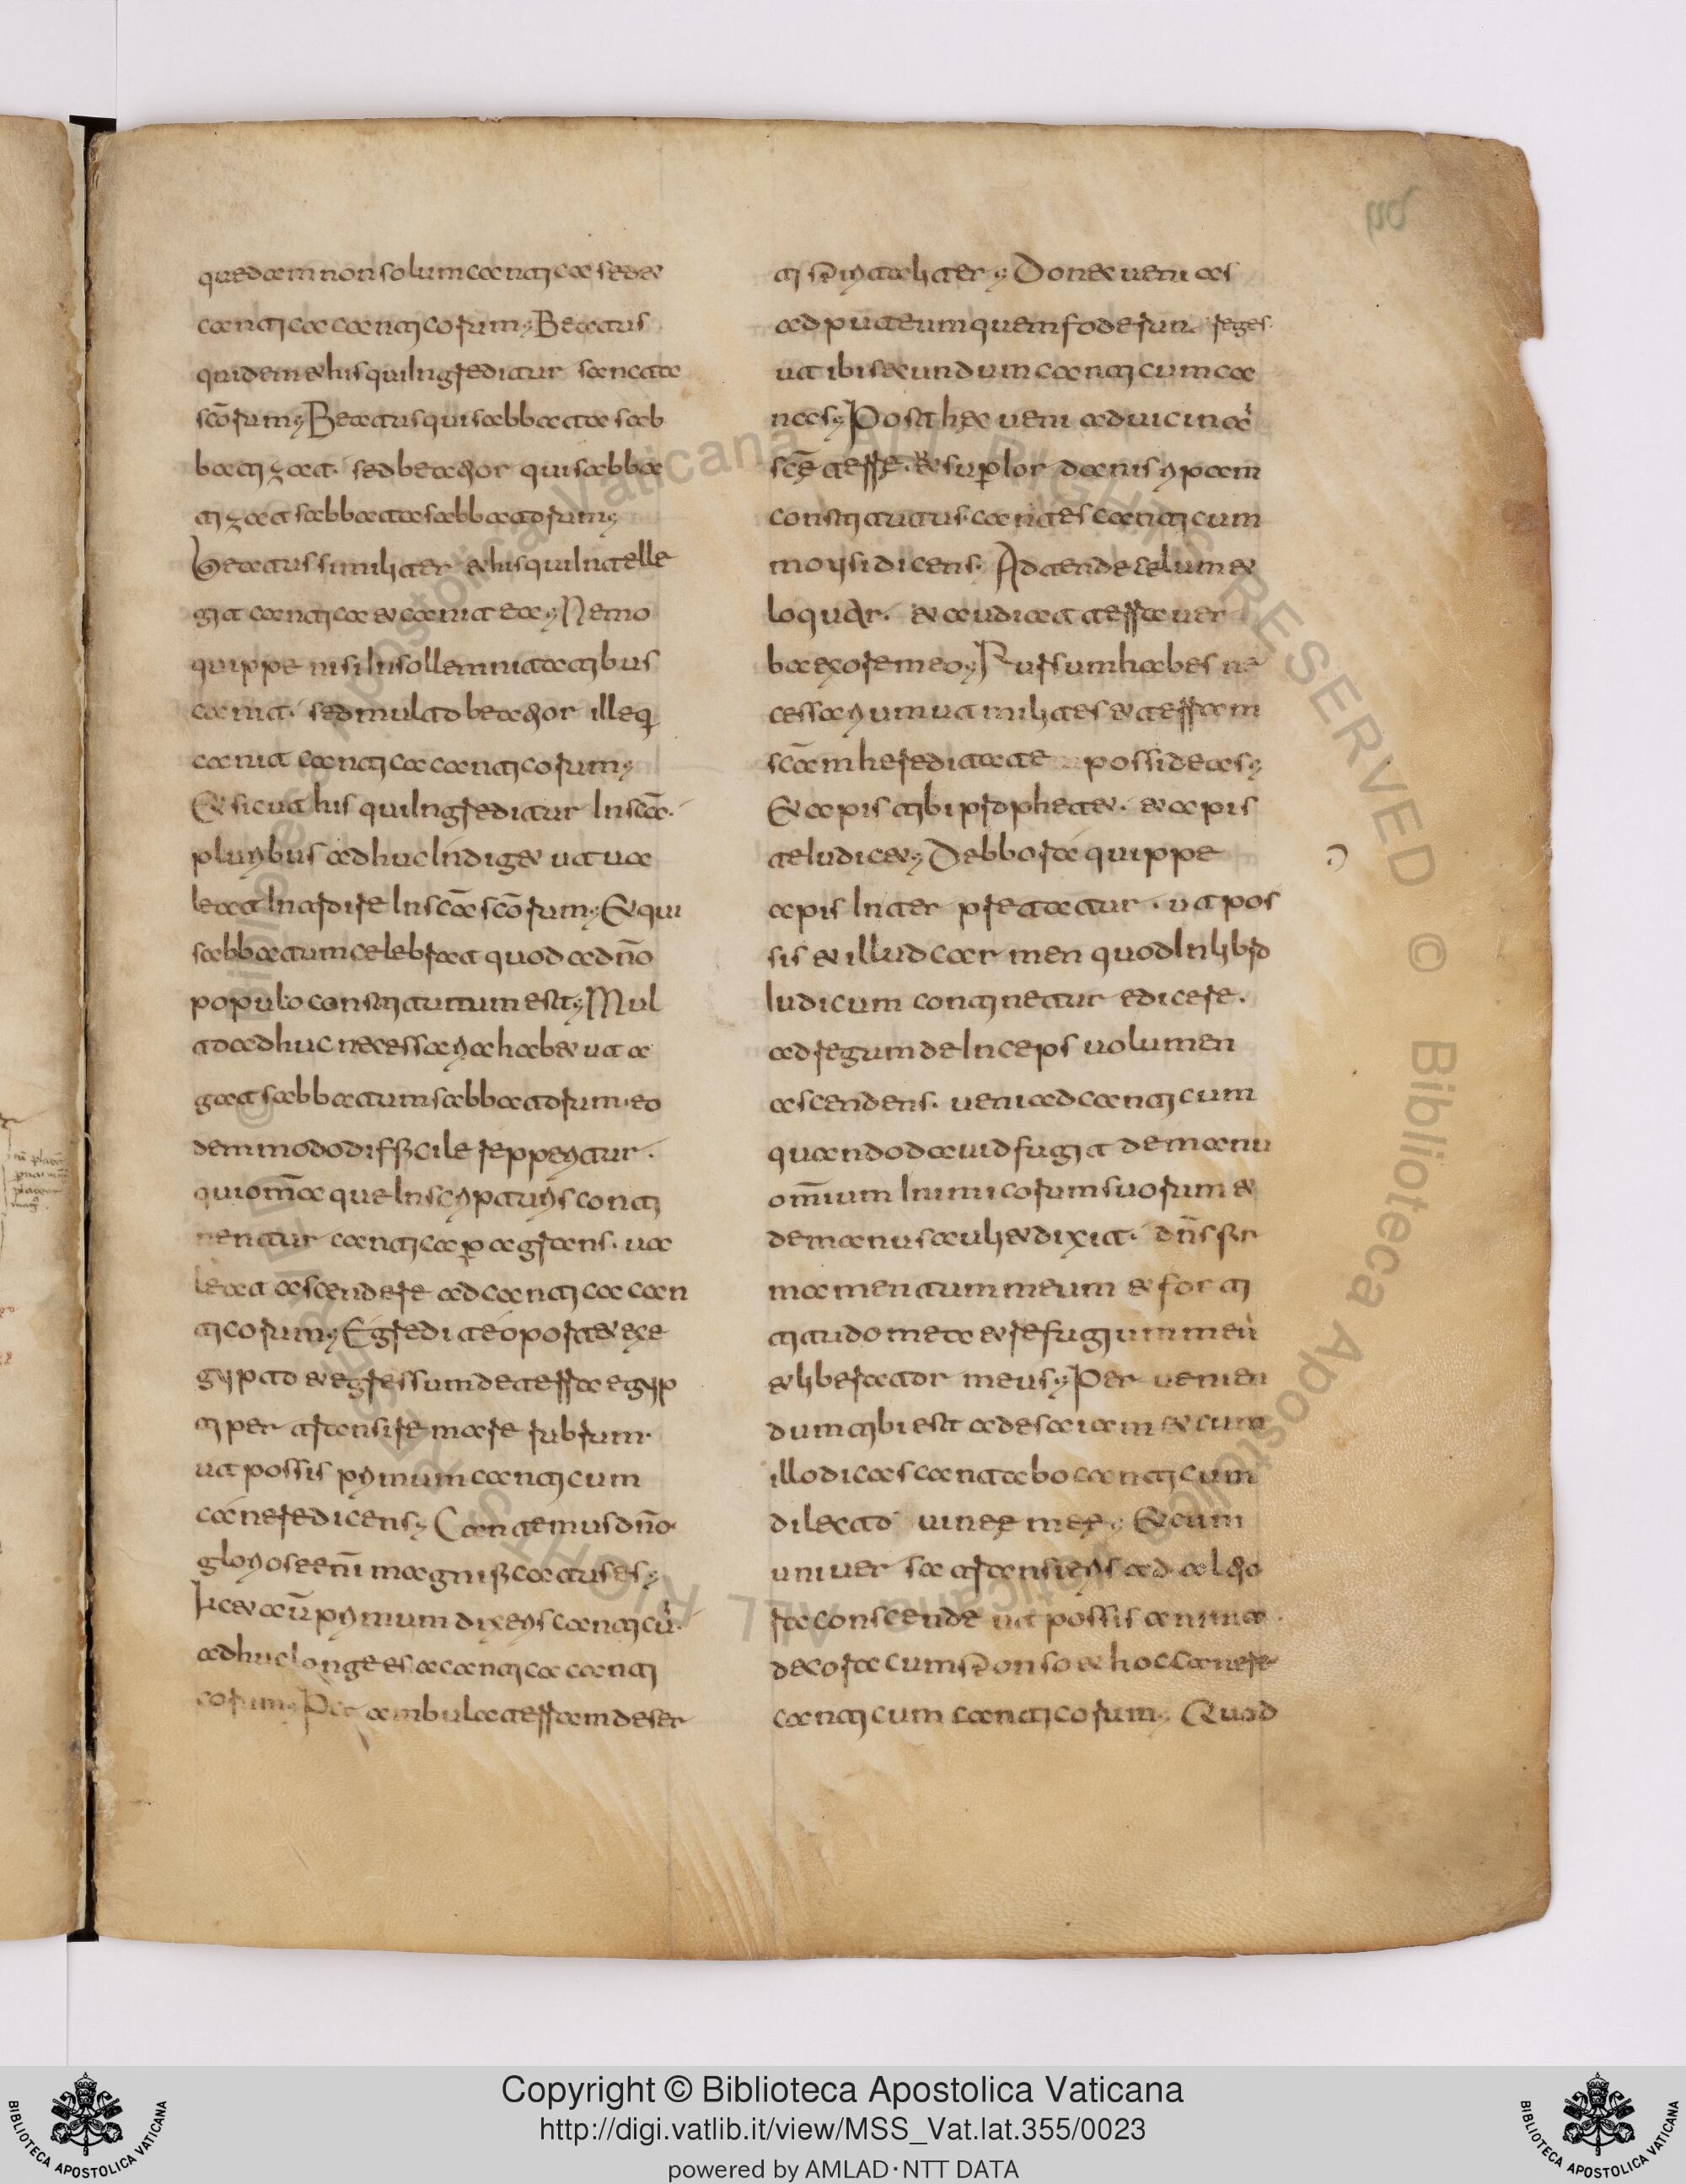 quedam non solum cantica sed et
cantica canticorum; Beatus
quidem et his qui ingreditur sancta
scōrum; Beatus qui sabbata sab
batizat. sed beatior qui sabba
tizat sabbata sabbatorum;
beatus similiter et his qui intelle
git cantica et canit ea; Nemo
quippe nisi in sollemnitatibus
canit. sed multo beatior ille q
canit cantica canticorum;
Et sicut his qui ingreditur in scā.
pluribus adhuc indiget ut ua
leat introire in scā scōrum; Et qui
sabbatum celebrat quod a dnō
populo constitutum est; Mul
to adhuc necessaria habet ut a
gat sabbatum sabbatorum. eo
dem modo difficile repperitur.
qui omā que in scripturis conti
nentur cantica peragrans. ua
leat ascendere ad cantica can
ticorum; Egredi te oportet exe
gypto et egressum de terra egyp
ti per transire mare rubrum.
ut possis primum canticum
canere dicens; Cantemus dnō.
gloriose enī magnificatus es;
Licet aū primum dixeris canticū.
adhuc longe es a cantica canti
corum; Per ambula terram deser
ti spiritaliter; Donec uenias
ad puteum quem foderunt reges.
ut ibi secundum canticum ca
nas; Post hec ueni ad uicinā
scē terre. et super lor danis ripam
constitutus. cantes canticum
moysi dicens. Adtende celum et
loquar. et audiat terra uer
ba ex ore meo; Rursum habes ne
cessarium ut milites et terram
scām hereditate possideas;
Et apis tibi prophetet. et apis
te iudicet; Debbora quippe
apis inter pretatur. ut pos
sis et illud carmen quod in libro
iudicum continetur edicere.
ad regum deinceps uolumen
ascendens. ueni ad canticum
quando dauid fugit de manu
omīum inimicorum suorum et
de manu sauli et dixit. dn̄s fir
mamentum meum et forti
titudo mea et refugium meū
et liberator meus; Per uenien
dum tibi est ad esaiam et cum
illo dicas cantabo canticum
dilecto uineę meę; Et cum
uniuer sa transieris ad altio
ra conscende ut possis anima
decora cum sponso et hoc canere
canticum canticorum; Quod
Copyright © Biblioteca Apostolica Vaticana
http://digi.vatlib.it/view/MSS_Vat.lat.355/0023
powered by AMLAD·NTT DATA
BIBLIOTECA APOSTOLICA VATICANA
BIBLIOTECA APOSTOLICA VATICANA